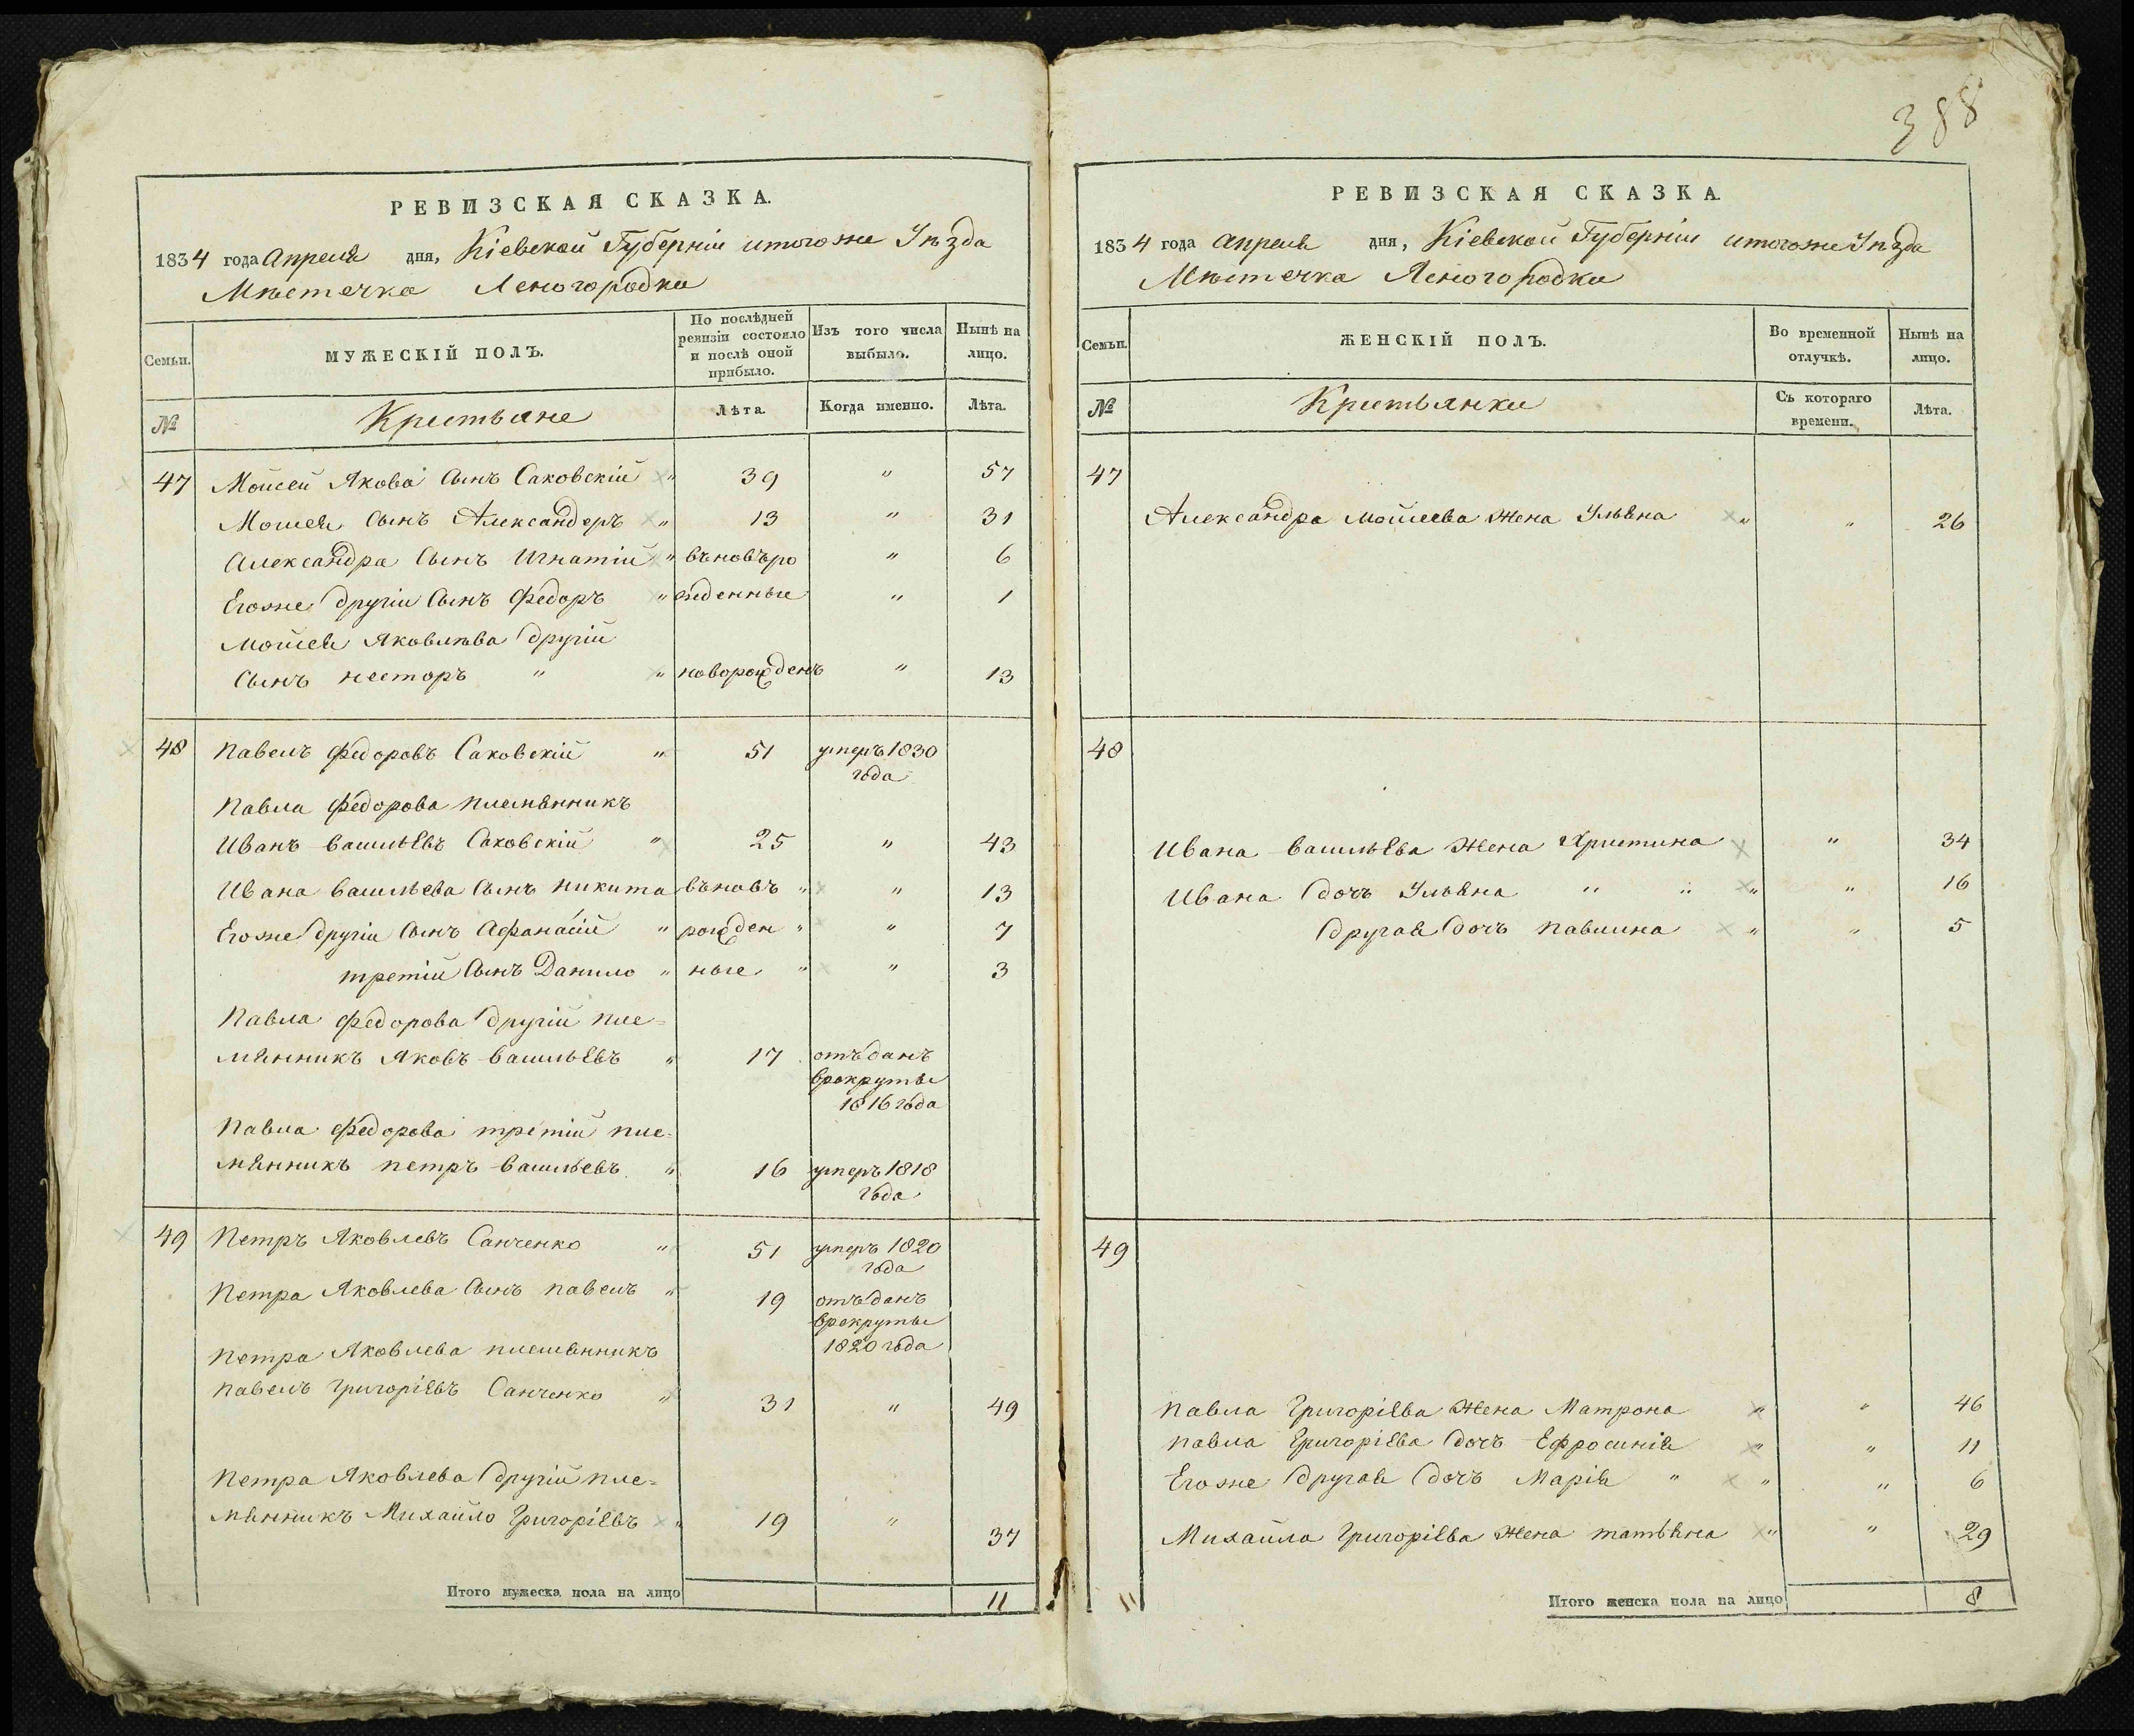 388
РЕВИЗСКАЯ СКАЗКА.
1834 года Апреля дня, Кіевской Губерніи итогоже Уѣзда
Мѣстечка Ясногородки
Семьи. МУЖЕСКІЙ ПОЛЪ. По послѣдней ревизіи состояло и послѣ оной прибыло. Изъ того числа выбыло. Нынѣ на лицо.
№ Крестьяне Лѣта. Когда именно. Лѣта.
47 Мойсей Якова Сынъ Саковскій " 39 " 57
Мойсея Сынъ Александеръ " 13 " 31
Александра Сынъ Игнатій " въновъро " 6
Егоже другій Сынъ Федоръ " жденные " 1
Мойсея Яковлѣва другій
Сынъ несторъ " " новорожденъ " 13
48 Павелъ Федоровъ Саковскій " 51 умеръ 1830
года
Павла Федорова племянникъ
Иванъ васильевъ Саковскій " 25 " 43
Ивана васильева Сынъ никита въновъ " " 13
Егоже другій Сынъ Афанасій " рожден " " 7
третій Сынъ Данило " ные " " 3
Павла Федорова другій пле=
мянникъ Яковъ васильевъ " 17 отъданъ
врекруты
1816 года
Павла Федорова третій пле=
мянникъ петръ васильевъ " 16 умеръ 1818
года
49 Петръ Яковлевъ Санченко " 51 умеръ 1820
года
Петра Яковлева Сынъ павелъ " 19 отъданъ
врекруты
1820 года
Петра Яковлева племянникъ
павелъ григоріевъ Санченко " 31 " 49
Петра Яковлева другій пле=
мянникъ Михайло григоріевъ " 19 " 37
Итого мужеска пола на лицо 11
РЕВИЗСКАЯ СКАЗКА.
1834 года Апреля дня, Кіевской Губерніи итогоже Уѣзда
Мѣстечка Ясногородки
Семьи. ЖЕНСКІЙ ПОЛЪ. Во временной отлучкѣ. Нынѣ на лицо.
№ Крестьянки Съ котораго времени. Лѣта.
47
Александра Мойсеева Жена Ульяна " " 26
48
Ивана васильева Жена Христина " 34
Ивана дочъ Ульяна " " " " 16
другая дочъ павлина " " 5
49
павла григоріева Жена Матрона " " 46
павла григоріева дочъ Ефросинія " " 11
Егоже другая дочъ Марія " " " 6
Михайла григоріева Жена татьяна " " 29
11 Итого женска пола на лицо 8